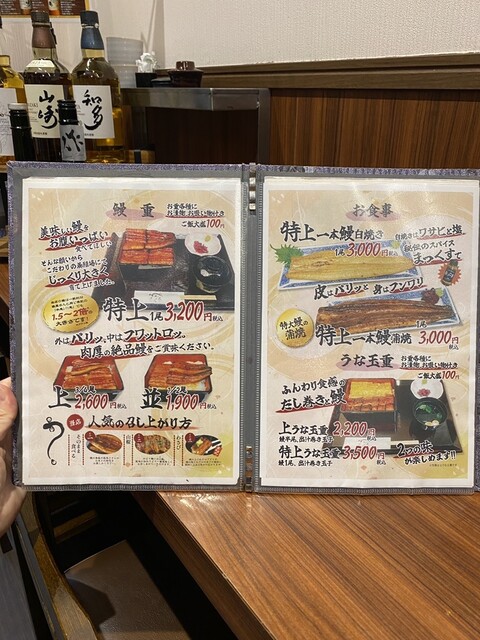 山崎
知多
作
鰻重
お重各種に
お漬物 お吸い物付き
ご飯大盛100円
美味しい鰻を
お腹いっぱい
食べてほしい。
そんな願いから
こだわりの養鰻場にて
じっくり大きく
育て上げました。
1.5〜2倍の
大きさです!
特上 1尾 3,200円税込
外はパリッ、中はフワットロッ。
肉厚の絶品鰻をご賞味ください。
上 3/4尾 2,600円税込
並 1/2尾 1,900円税込
当店 人気の召し上がり方
そのまま
食べる
山椒
わさび
お食事
特上一本鰻白焼き
1尾 3,000円税込
白焼きはワサビと塩
秘伝のスパイス
まっくすで
皮はパリッと 身はフンワリ
特大鰻の
蒲焼
特上一本鰻蒲焼 1尾 3,000円税込
うな玉重
お重各種に
お漬物 お吸い物付き
ご飯大盛100円
ふんわり食感の
だし巻きと鰻
上うな玉重 2,200円税込
鰻半尾、出汁巻き玉子
特上うな玉重 3,500円税込
鰻1尾、出汁巻き玉子
2つの味
が楽しめます!!